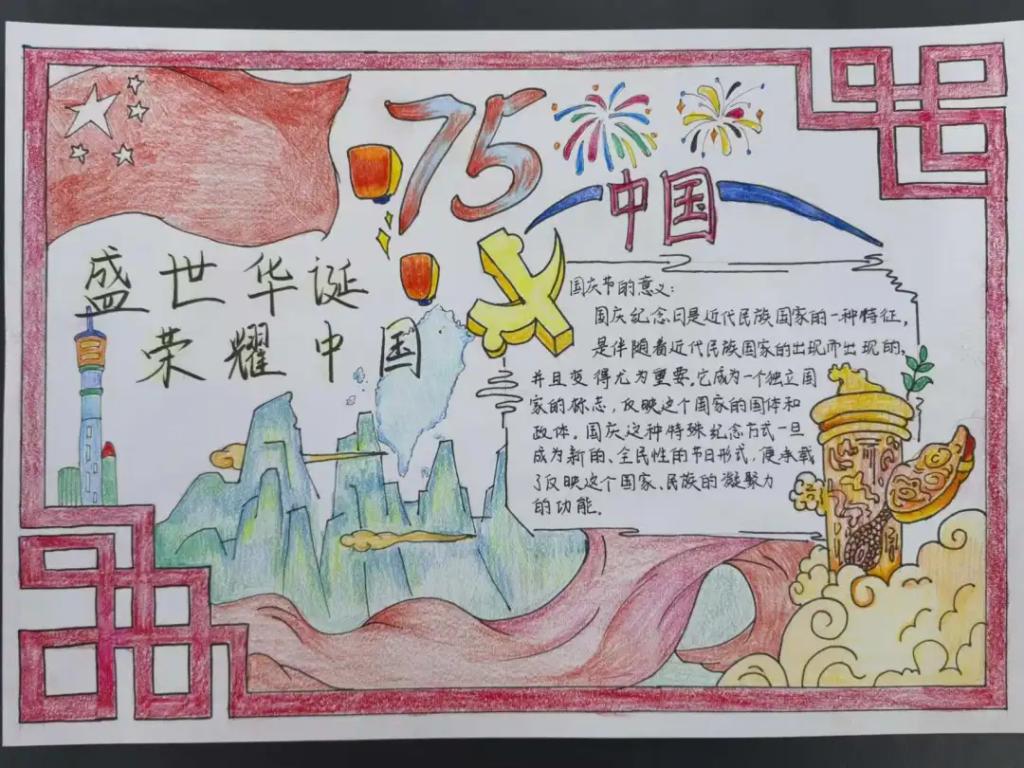 75
中国
盛世华诞
荣耀中国
国庆节的意义：
国庆纪念日是近代民族国家的一种特征，
是伴随着近代民族国家的出现而出现的，
并且变得尤为重要。它成为一个独立国
家的标志，反映这个国家的国体和
政体。国庆这种特殊纪念方式一旦
成为新的、全民性的节日形式，便承载
了反映这个国家、民族的凝聚力
的功能。